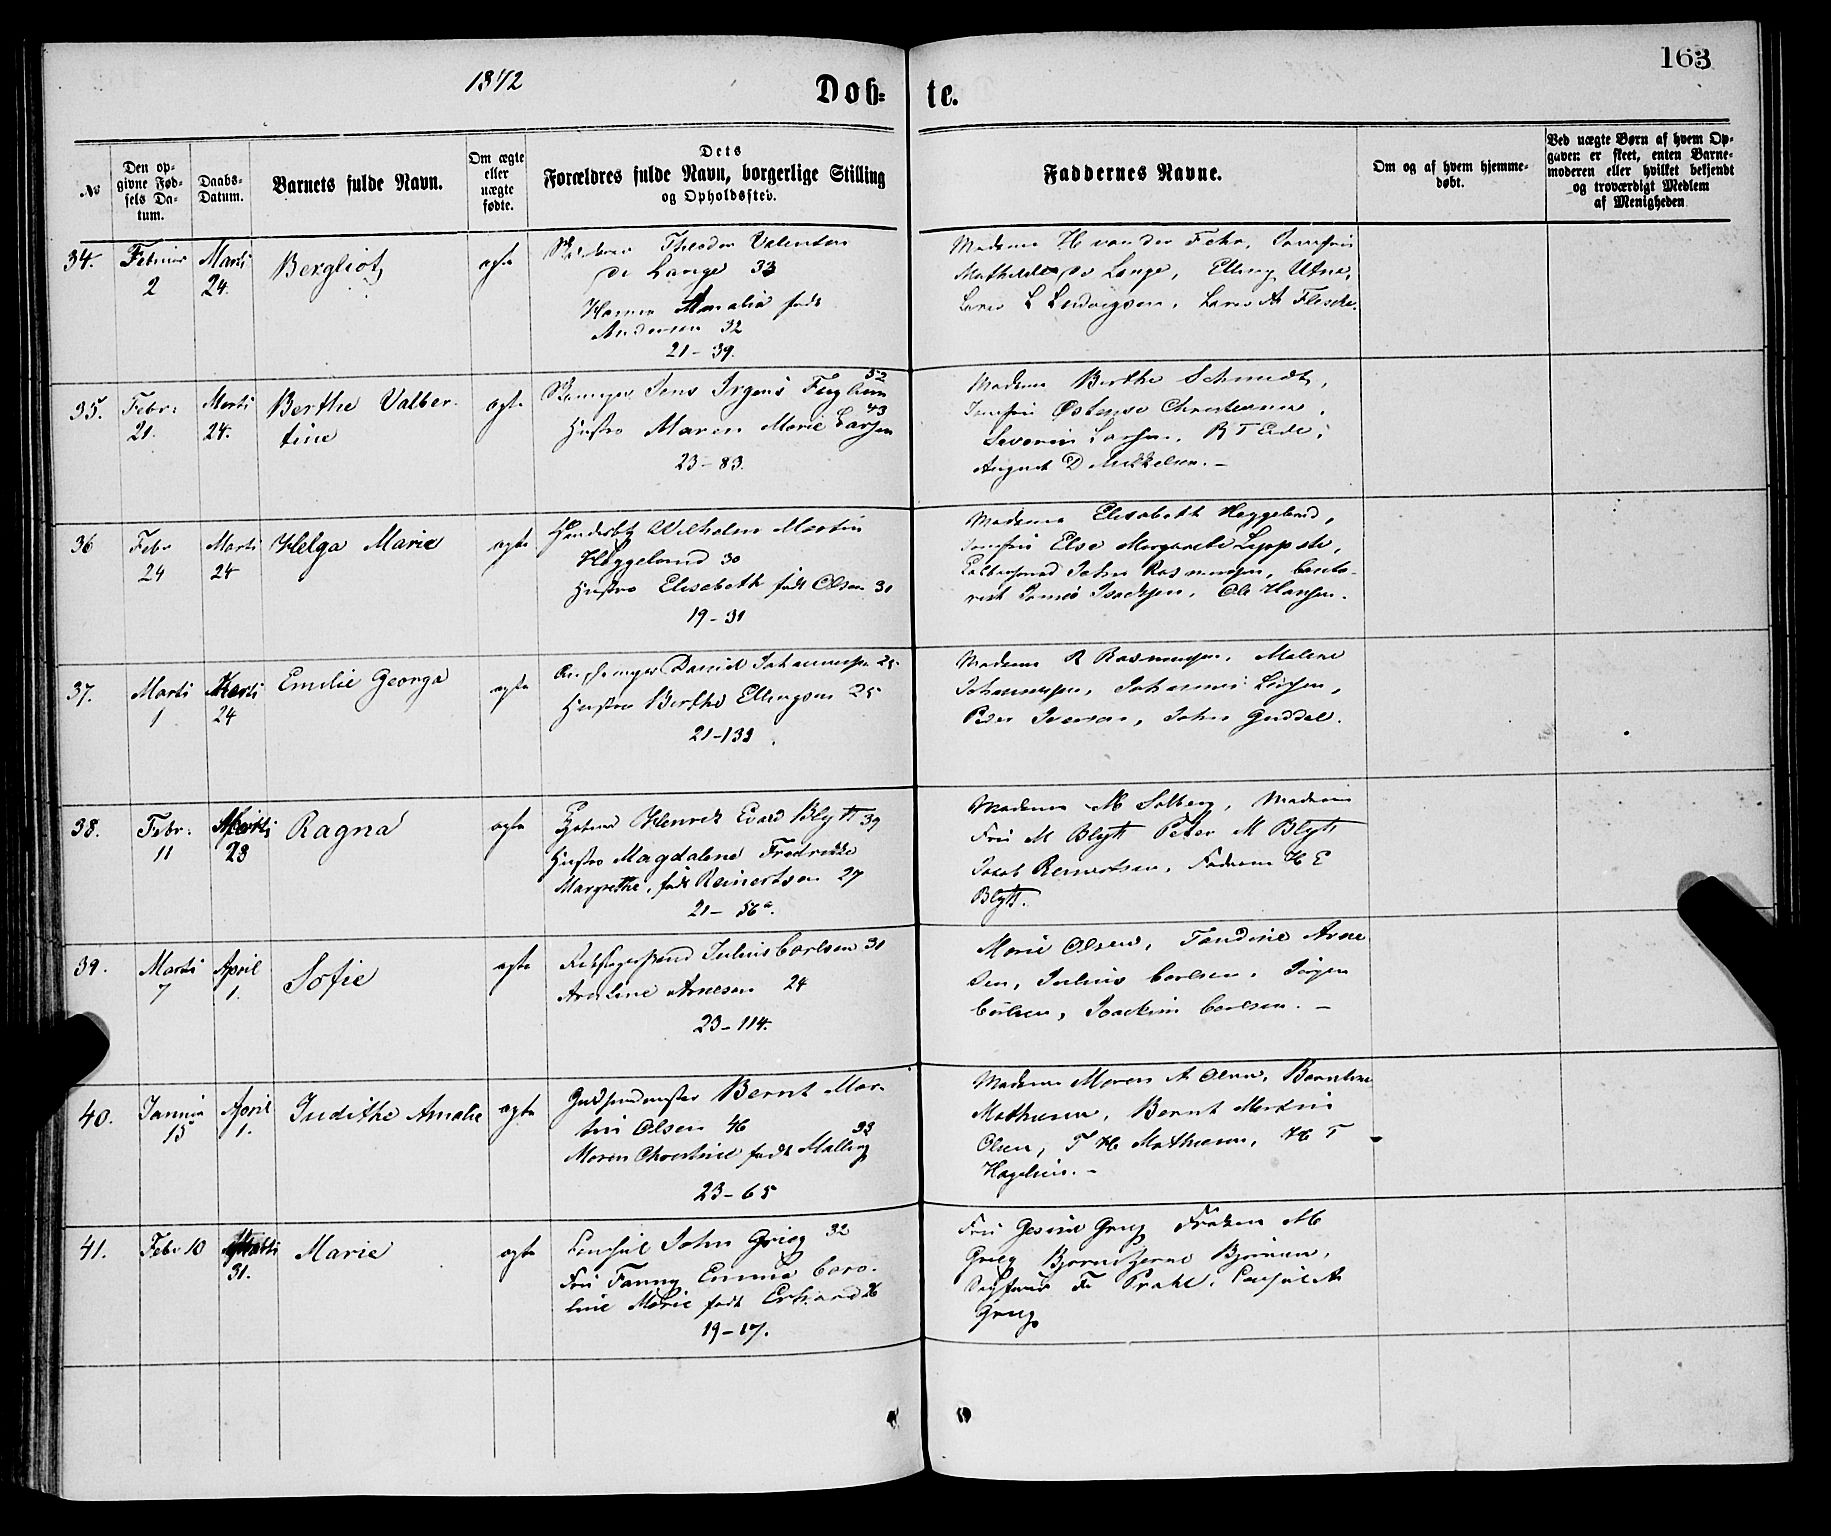 163
1872
Døb= te.
No
Den op-
givne Fød-
sels Da-
tum.
Daabs-
Datum.
Barnets fulde Navn.
Om ægte
eller
uægte
fødte.
Dets
Forældres fulde Navn, borgerlige Stilling
og Opholdssted.
Faddernes Navne.
Om og af hvem hjemme-
døbt.
Ved uægte Børn af hvem Op-
gaven er skeet, enten Barne-
moderen eller hvilket bekjendt
og troværdigt Medlem
af Menigheden
34.
Februar
2
Marti
24.
Bergliot
ægte
Theodor Valentin
de Lange 33
Hanna Amalia født
Andersen 32
21-39.
Madame H von der Fehr, Jomfru
Mathilde de Lange, Elling Utne,
Lars L Ludvigsen, Lars A Flesche.
35.
Febr:
21.
Marti
24.
Berthe Valber-
tine
ægte
52
Jens Irgens Fuglum
43
Hustro Maren Marie Larsen
23-83.
Madame Berthe Schmidt,
Jomfru Østense Christensen,
Severin Larsen, R T Eide,
August D Mikkelsen.-
36
Febr
24
Marti
24
Helga Marie
ægte
Wilhelm Martin
Heggelund 30
Hustro Elisabeth født Olsen 31
19-31
Madame Elisabeth Heggelund,
Jomfru Else Margarethe Leppste,
John Rasmussen, Conto-
rist Isachsen, Ole Hansen.
37.
Marti
1
Marti
24
Emilie Georga
ægte
Daniel Johannessen 25
Hustro Berthe Ellingsen 25
21-133
Madame R Rasmussen, Malene
Johannessen, Johannes Larsen,
Peder Iversen, John Guddal.
38.
Febr:
11
Marti
23
Ragna
ægte
Henrik Edvard Blytt 39
Hustro Magdalene Fredrikke
Margrethe, født Reinertsen 27
21-56a.
Madame M Solberg, Madame
Fru M Blytt Peter M Blytt
Jacob Reinertsen, Faderen H E
Blytt.
39.
Marti
7
April
1.
Sofie
ægte
Julius Carlsen 31
Arnesen 24
23-114.
Marie Olsen, Tandine Arne
sen, Julius Carlsen, Jørgen
Carlsen, Joackim Carlsen.-
40.
Januar
15
April
1.
Judithe Amalie
ægte
Bernt Mar-
tin Olsen 46
33
Maren Christine født Malling
23-65
Madame Maren A Olsen, Berntine
Mathiesen, Bernt Martin
Olsen, T H Mathiesen, H T
Hagelien.-
41.
Febr 10
Marti
31.
Marie
ægte
Consul John Grieg 32
Fru Fanny Emma Caro-
line Marie født Erhardt
19-17.
Fru Gesine Grieg Frøken M
Grieg Bjørnstjerne Bjørnson,
F Prahl, Consul A
Grieg